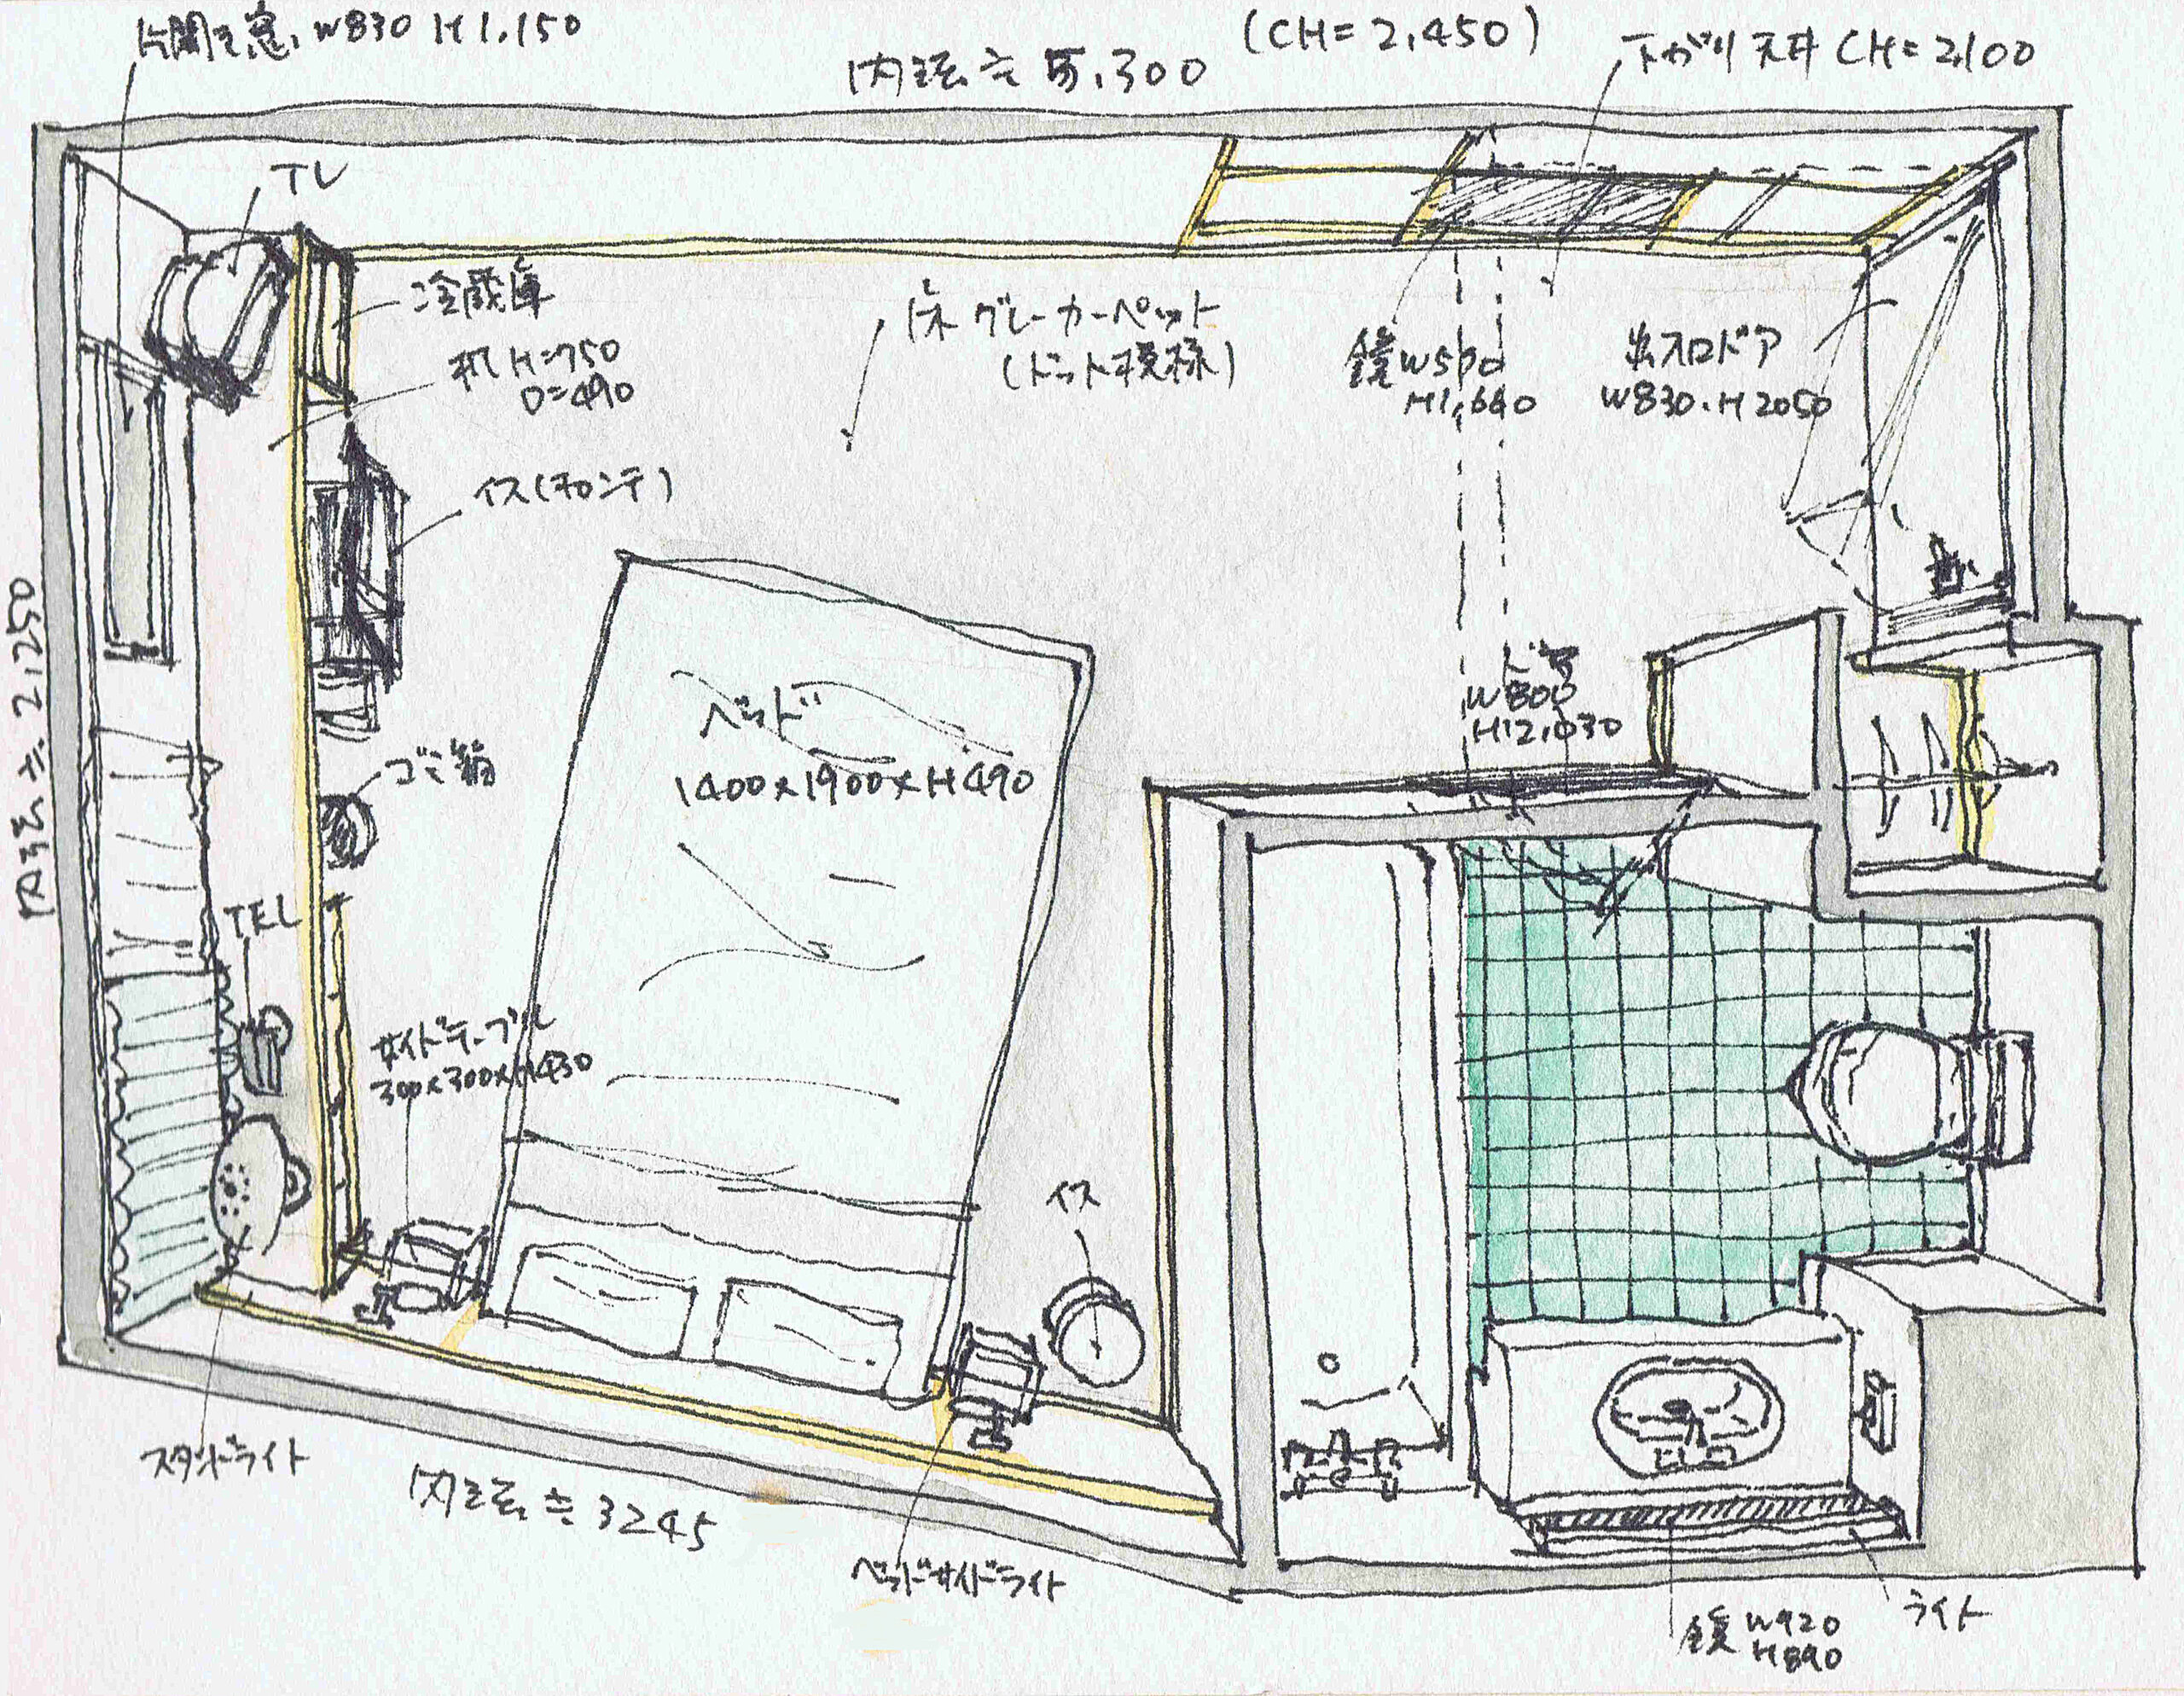 片開き窓 W830 H1,150
内法≒5,300
(CH=2,450)
下がり天井 CH=2,100
TV
冷蔵庫
机 H=750
D=490
床 グレーカーペット
(ドット模様)
鏡 W590
H1,640
出入口ドア
W830.H2050
イス(
ゴミ箱
ベッド
1400×1900×H490
ドア
W800
H12,030
内法≒2,250
TEL
サイドテーブル
300×300×H430
イス
スタンドライト
内法≒3245
ベッドサイドライト
鏡 W920
H890
ライト